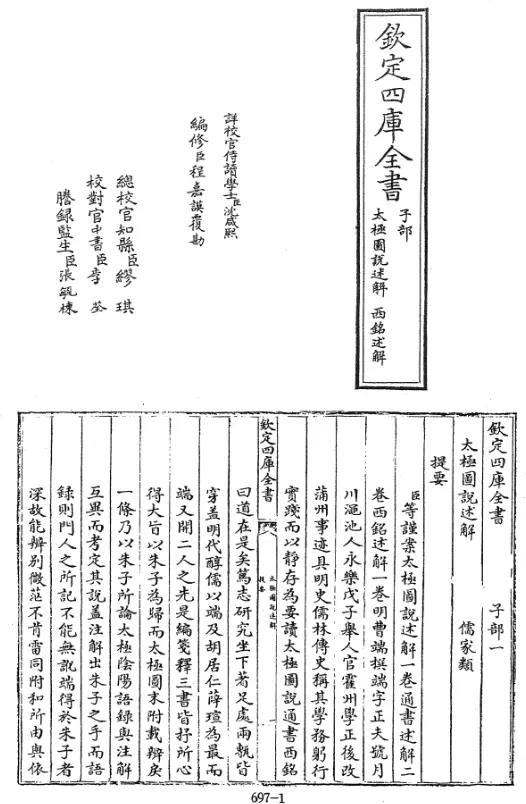 欽定四庫全書
子部
太極圖說述解 西銘述解
詳校官侍讀學士臣沈咸熙
編修臣程嘉謨覆勘
總校官知縣臣繆琪
校對官中書臣李荃
謄錄監生臣張毓棟
欽定四庫全書 子部一
太極圖說述解 儒家類
提要
臣等謹案太極圖說述解一卷通書述解二
卷西銘述解一卷明曹端撰端字正夫號月
川澠池人永樂戊子舉人官霍州學正後改
蒲州事迹具明史儒林傳史稱其學務躬行
實踐而以靜存為要讀太極圖說通書西銘
欽定四庫全書
太極圖說述解
提要
曰道在是矣篤志研究坐下著足處兩甎皆
穿蓋明代醇儒以端及胡居仁薛瑄為最而
端又開二人之先是編箋釋三書皆抒所心
得大旨以朱子為歸而太極圖末附載辨戾
一條乃以朱子所論太極陰陽語錄與注解
互異而考定其說蓋注解出朱子之手而語
錄則門人之所記不能無訛端得於朱子者
深故能辨別微茫不肯雷同附和所由與依
697-1